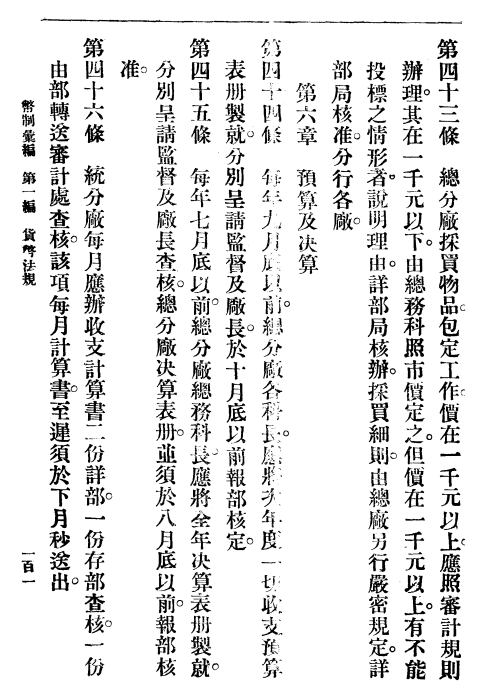 第四十三條　總分廠採買物品。包定工作。價在一千元以上。應照審計規則
辦理。其在一千元以下。由總務科照市價定之。但價在一千元以上。有不能
投標之情形者。說明理由。詳部局核辦。採買細則。由總廠另行嚴密規定。詳
部局核准。分行各廠。
第六章　預算及決算
第四十四條　每年九月底以前。總分廠各科長。應將次年度一切收支預算
表册製就。分別呈請監督及廠長。於十月底以前報部核定。
第四十五條　每年七月底以前。總分廠總務科長。應將全年決算表册製就。
分別呈請監督及廠長查核。總分廠決算表册。並須於八月底以前。報部核
准。
第四十六條　統分廠每月應辦收支計算書二份詳部。一份存部查核。一份
由部轉送審計處查核。該項每月計算書。至遲須於下月秒送出。
幣制彙編　第一編　貨幣法規
一百一